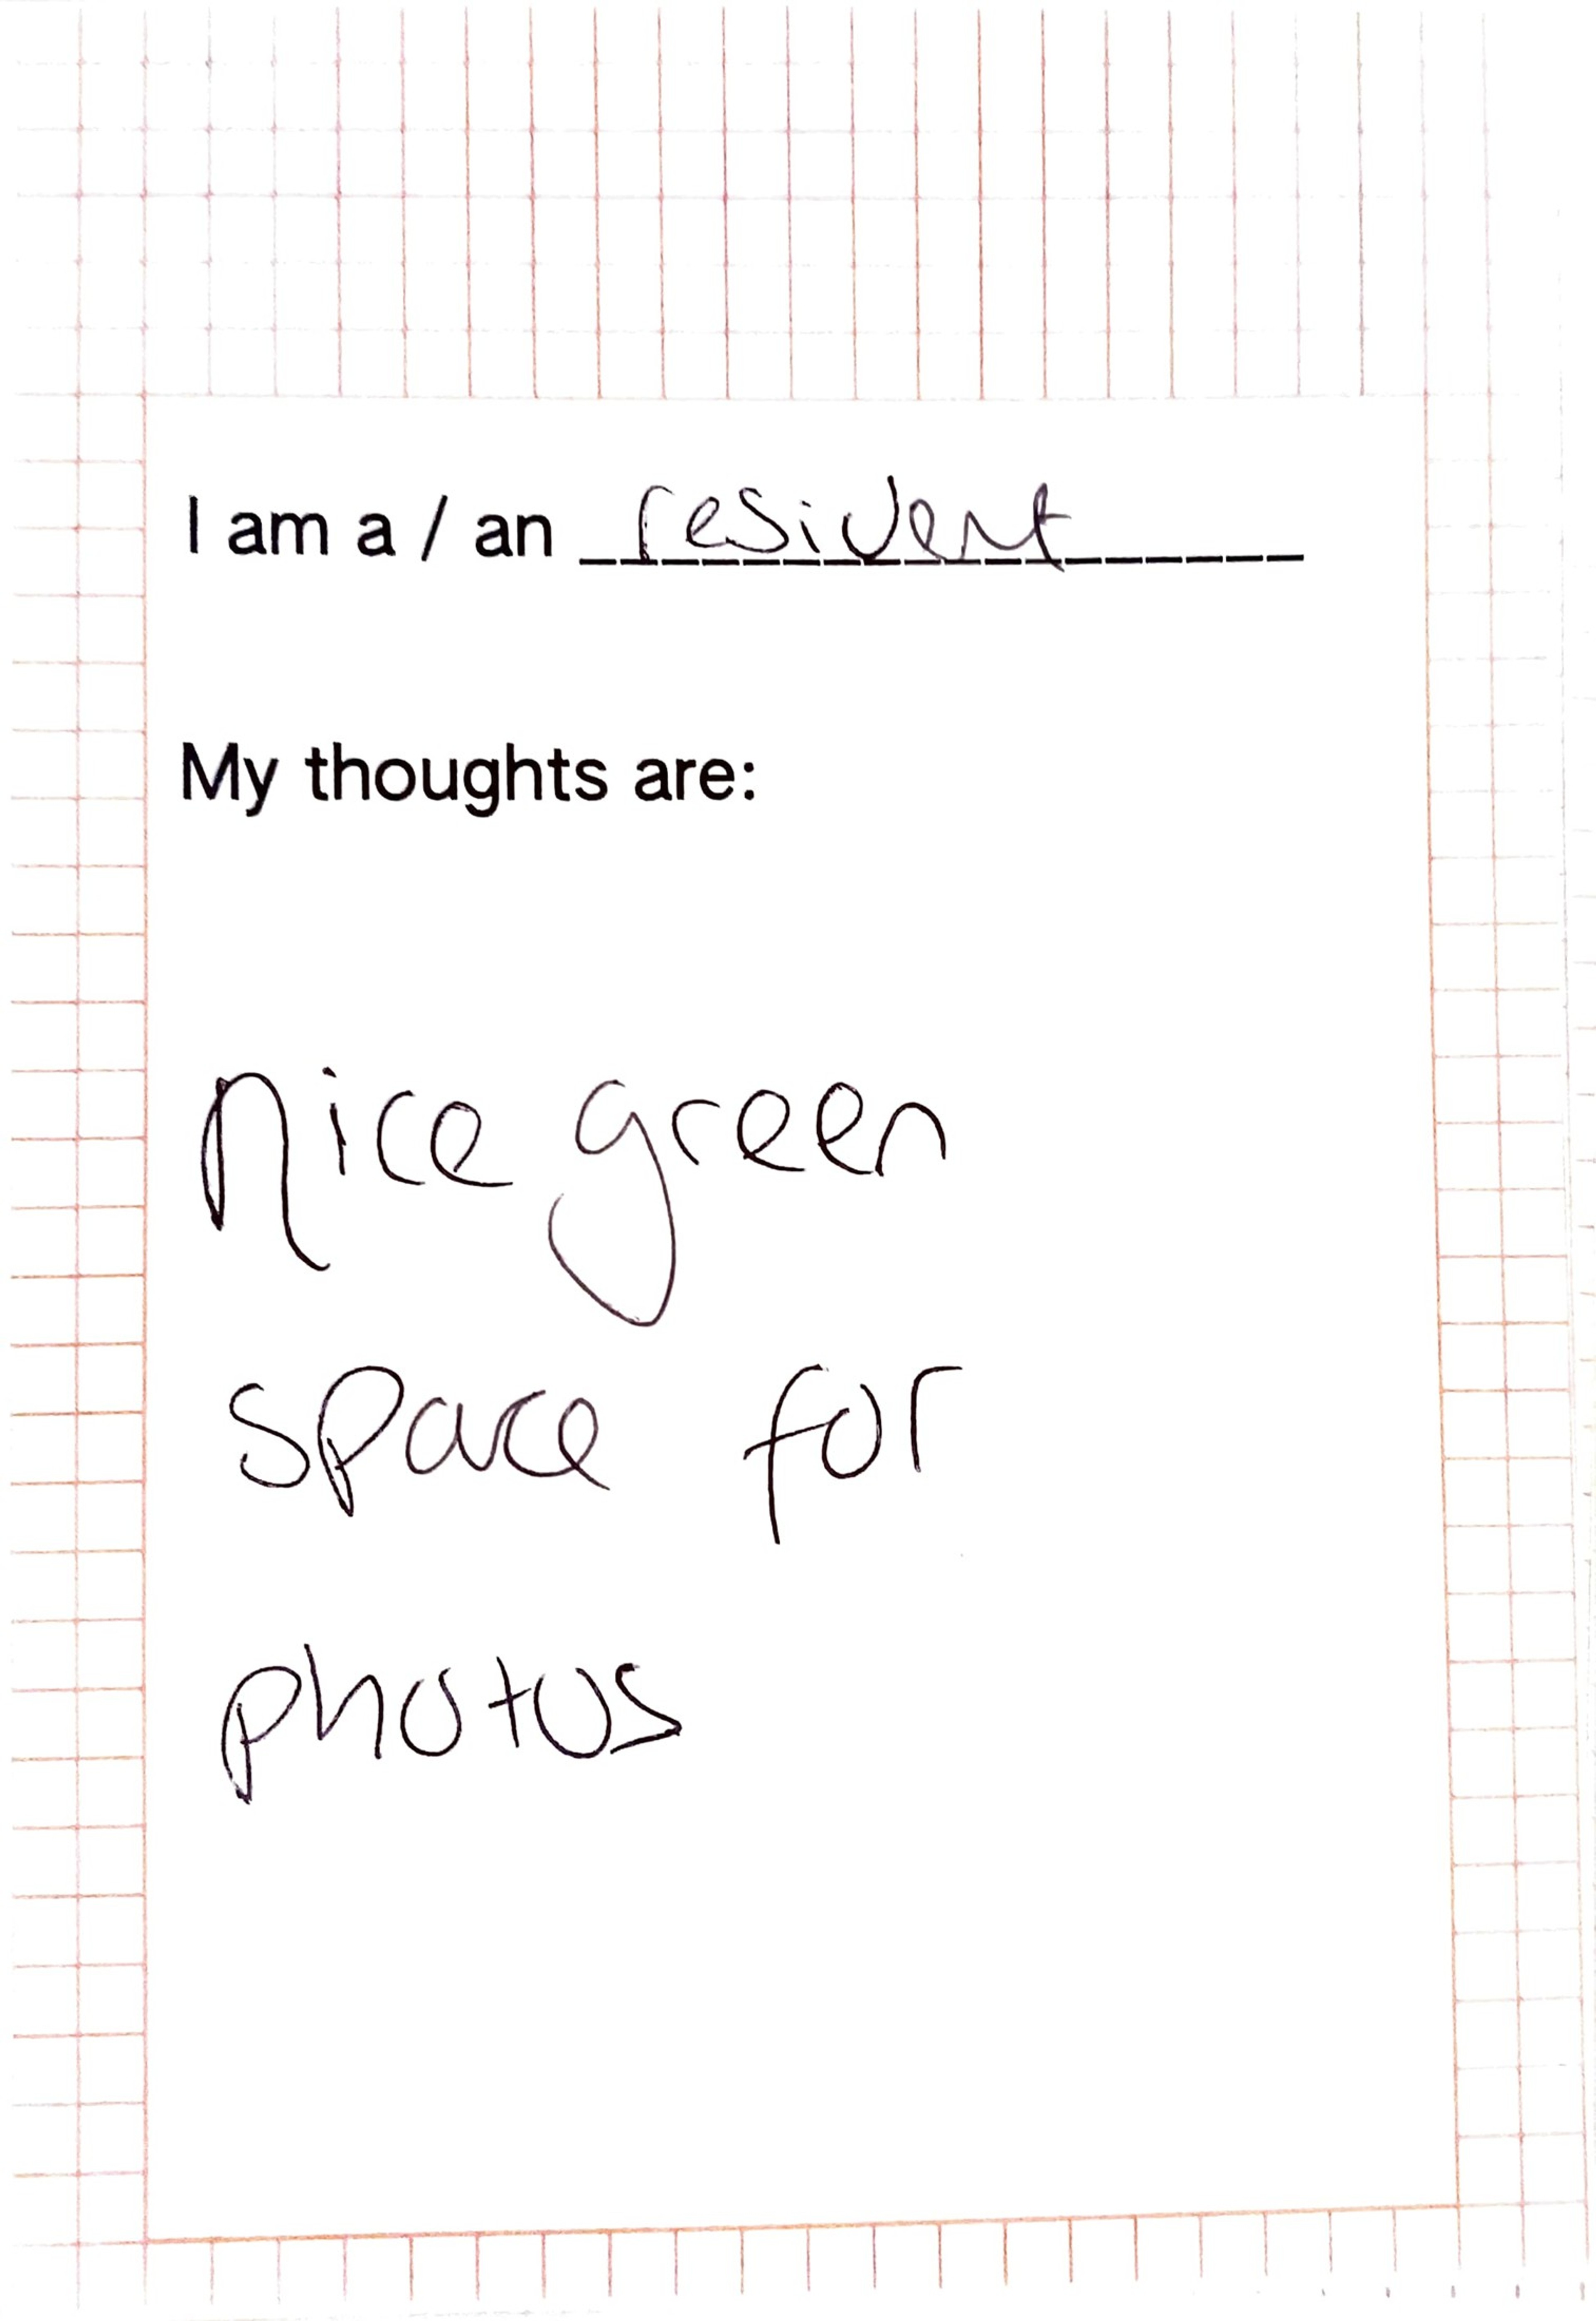 I am a / an resident
My thoughts are:
nice green
space for
photos